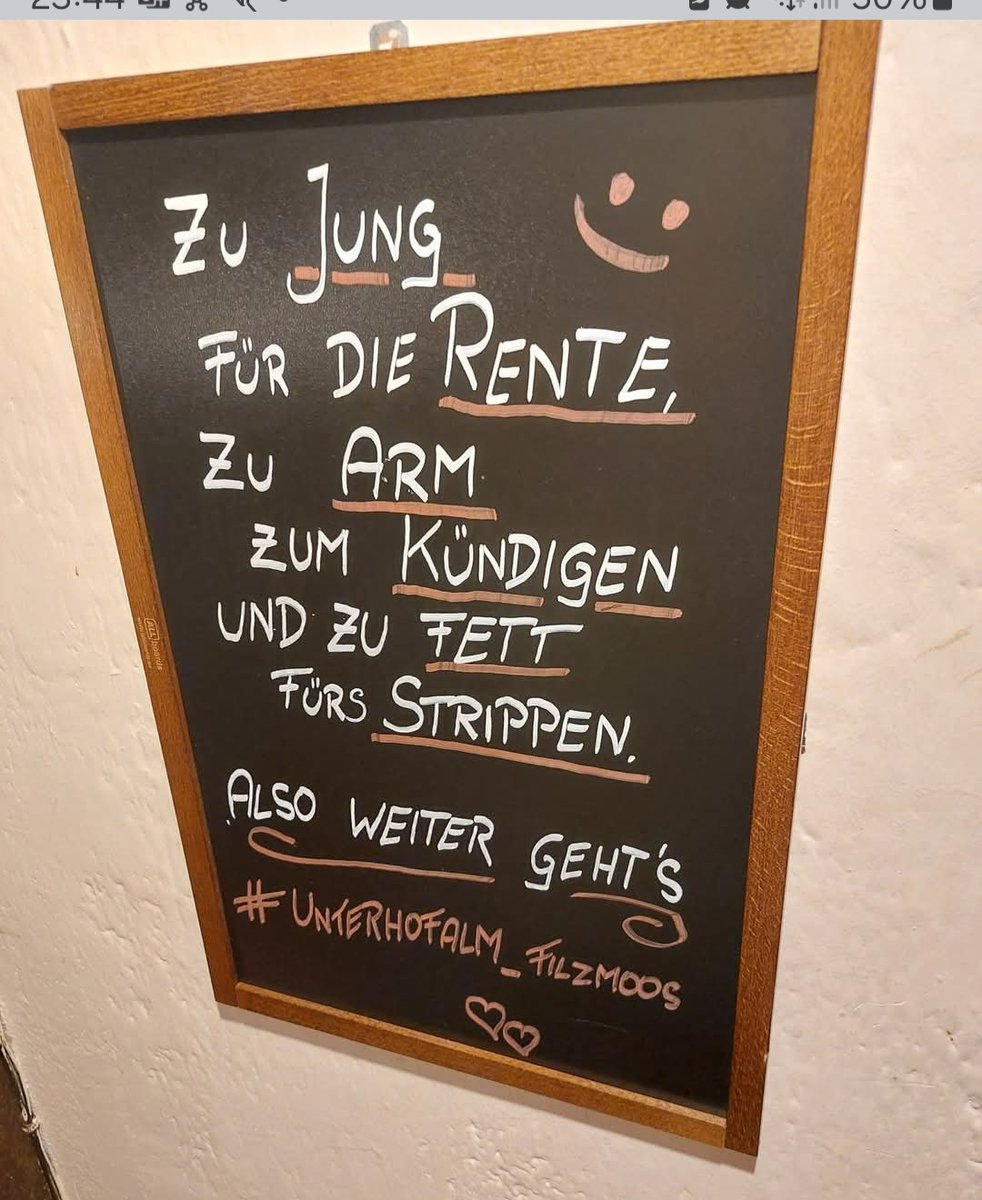 Zu Jung
FÜR DIE RENTE,
Zu ARM
ZUM KÜNDIGEN
UND ZU FETT
FÜRS STRIPPEN.
ALSO WEITER GEHT'S
# UNTERHOFALM_FILZMOOS
ALLboards